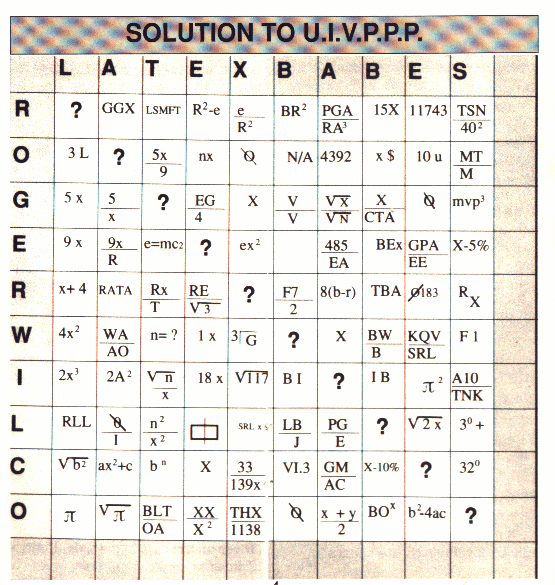 SOLUTION TO U.I.V.P.P.P.
L A T E X B A B E S
R ? GGX LSMFT R²-e e/R² BR² PGA/RA³ 15X 11743 TSN/40²
O 3 L ? 5x/9 nx N/A 4392 x $ 10 u MT/M
G 5 x 5/x ? EG/4 X V/V √X/√N X/CTA mvp³
E 9 x 9x/R e=mc2 ? ex² 485/EA BEx GPA/EE X-5%
R x+ 4 RATA Rx/T RE/√3 ? F7/2 8(b-r) TBA Ø183 R X
W 4x² WA/AO n= ? 1 x 3√G ? X BW/B KQV/SRL F 1
I 2x³ 2A² √n/x 18 x √117 B I ? I B π² A10/TNK
L RLL n²/x² SRL x LB/J PG/E ? √2 x 3⁰ +
C √b² ax²+c bⁿ X 33/139x VI.3 GM/AC X-10% ? 32⁰
O π √π BLT/OA XX/X² THX/1138 x + y/2 BOˣ b²-4ac ?